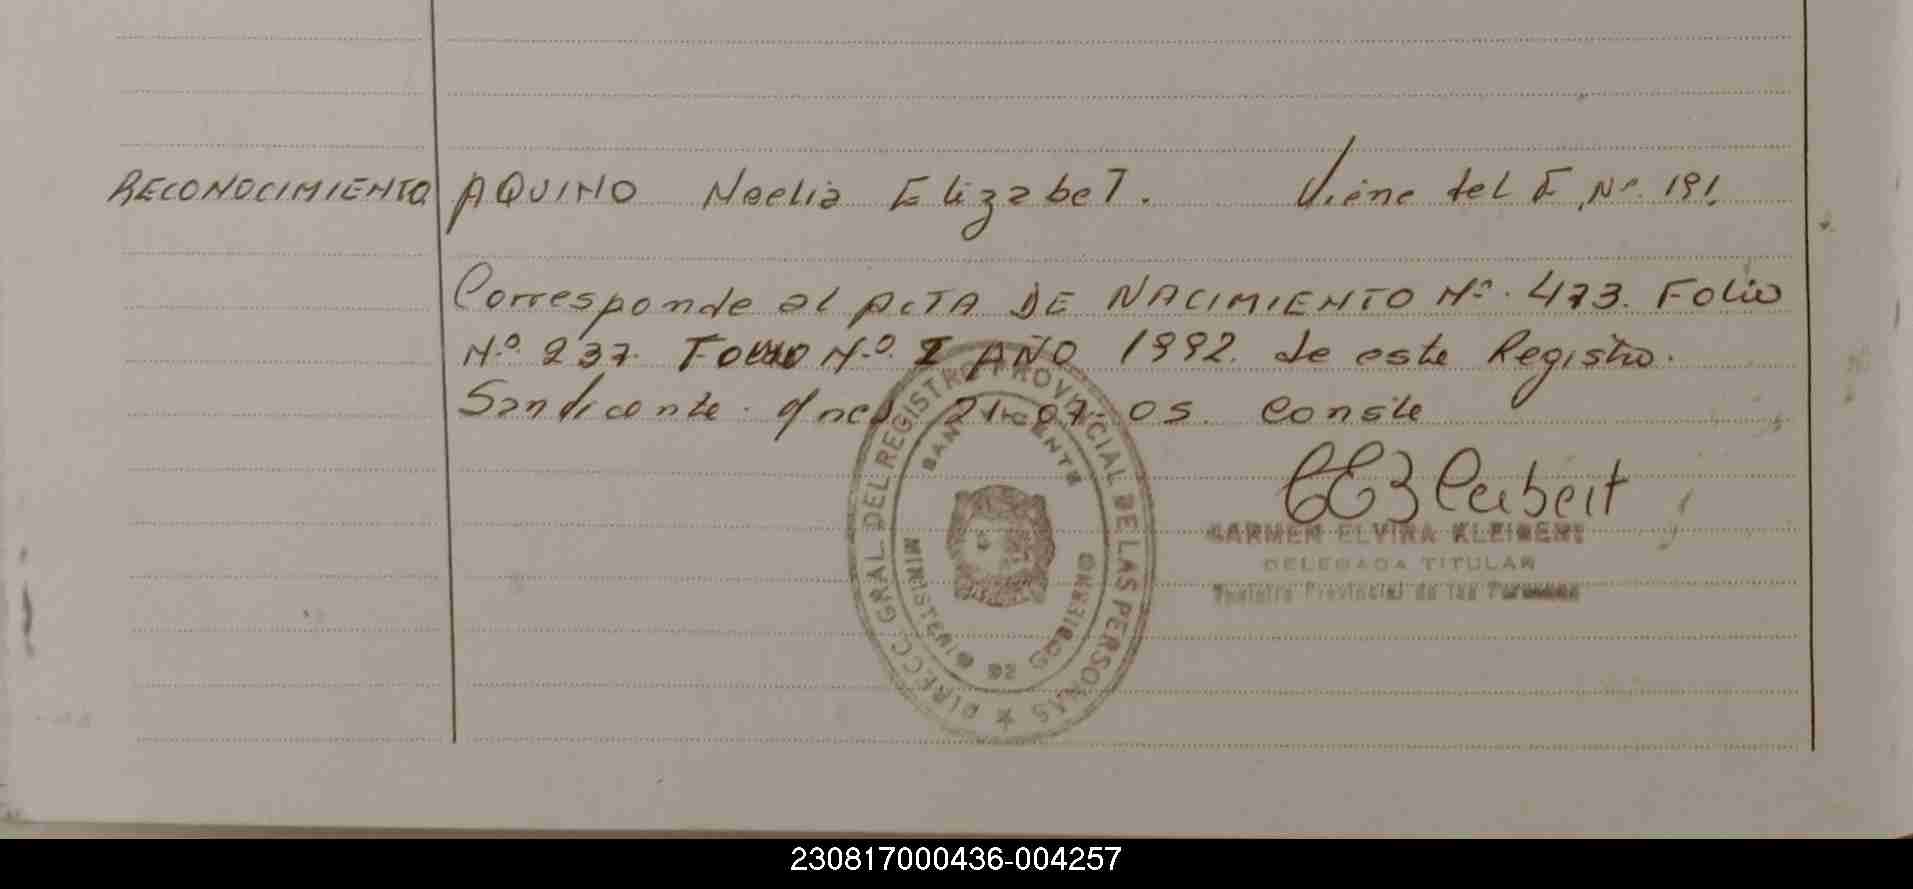 RECONOCIMIENTO AQUINO Noelia ElizabeT. Viene del F. Nº. 191.
Corresponde al ACTA DE NACIMIENTO Nº. 473. Folio
Nº. 237. Tomo Nº. I AÑO 1992. de este Registro.
San Vicente. Mnes. 21-07-05. Conste
CARMEN ELVIRA KLEIBERT
DELEGADA TITULAR
Registro Provincial de las Personas
DIRECC. GRAL. DEL REGISTRO PROVINCIAL DE LAS PERSONAS
SAN VICENTE
MINISTERIO DE GOBIERNO
230817000436-004257